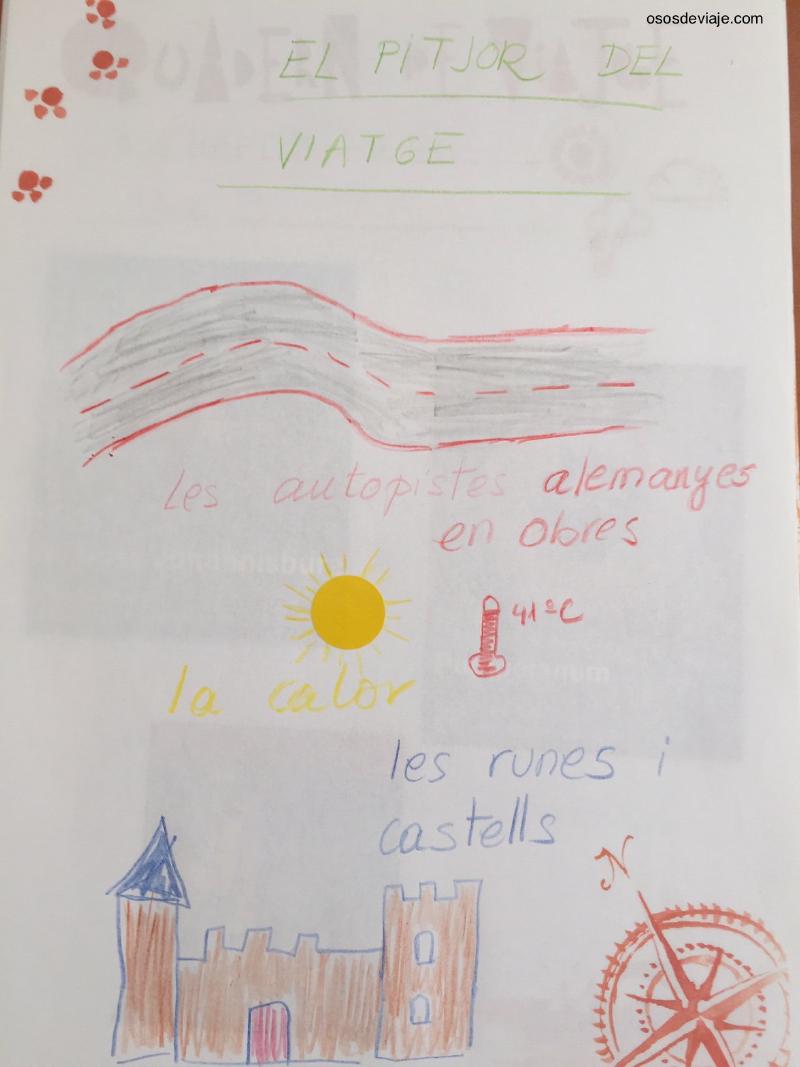 ososdeviaje.com
EL PITJOR DEL
VIATGE
les autopistes alemanyes
en obres
41ºC
la calor
les runes i
castells
N